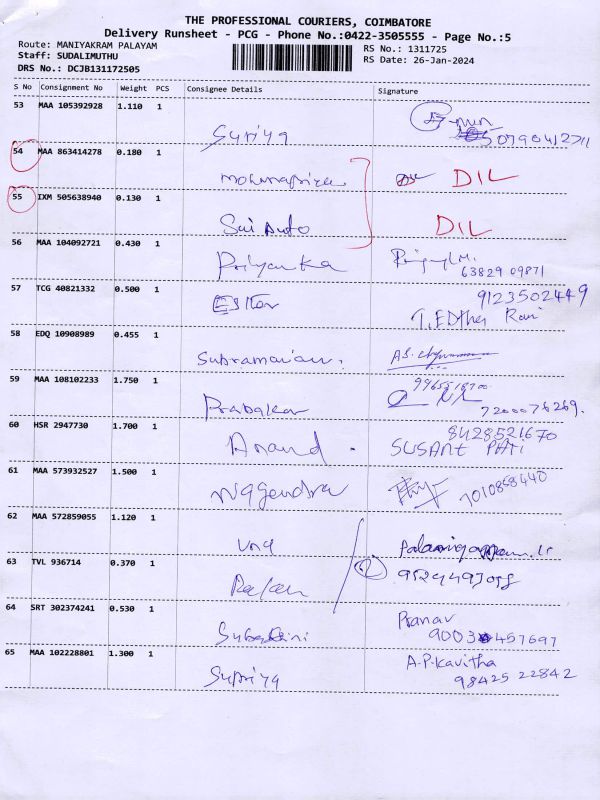 THE PROFESSIONAL COURIERS, COIMBATORE
Delivery Runsheet - PCG - Phone No.:0422-3505555 - Page No.:5
Route: MANIYAKRAM PALAYAM
RS No.: 1311725
Staff: SUDALIMUTHU
RS Date: 26-Jan-2024
DRS No.: DCJB131172505
S No Consignment No Weight PCS Consignee Details Signature
53 MAA 105392928 1.110 1
Suriya
54 MAA 863414278 0.180 1
DIL
55 IXM 505638940 0.130 1
Sai Auto DIL
56 MAA 104092721 0.430 1
Priyanka
63829 09871
57 TCG 40821332 0.500 1
9123502449
Ravi
58 EDQ 10908989 0.455 1
Subramanian. A.S.
59 MAA 108102233 1.750 1
Prabakar
7200076269.
60 HSR 2947730 1.700 1
8428521670
Anand. SUSANT PATI
61 MAA 573932527 1.500 1
Nagendra 7010858440
62 MAA 572859055 1.120 1
Uma
63 TVL 936714 0.370 1
2
64 SRT 302374241 0.530 1
Pranav
65 MAA 102228801 1.300 1
A.P.Kavitha
Supriya 98425 22842